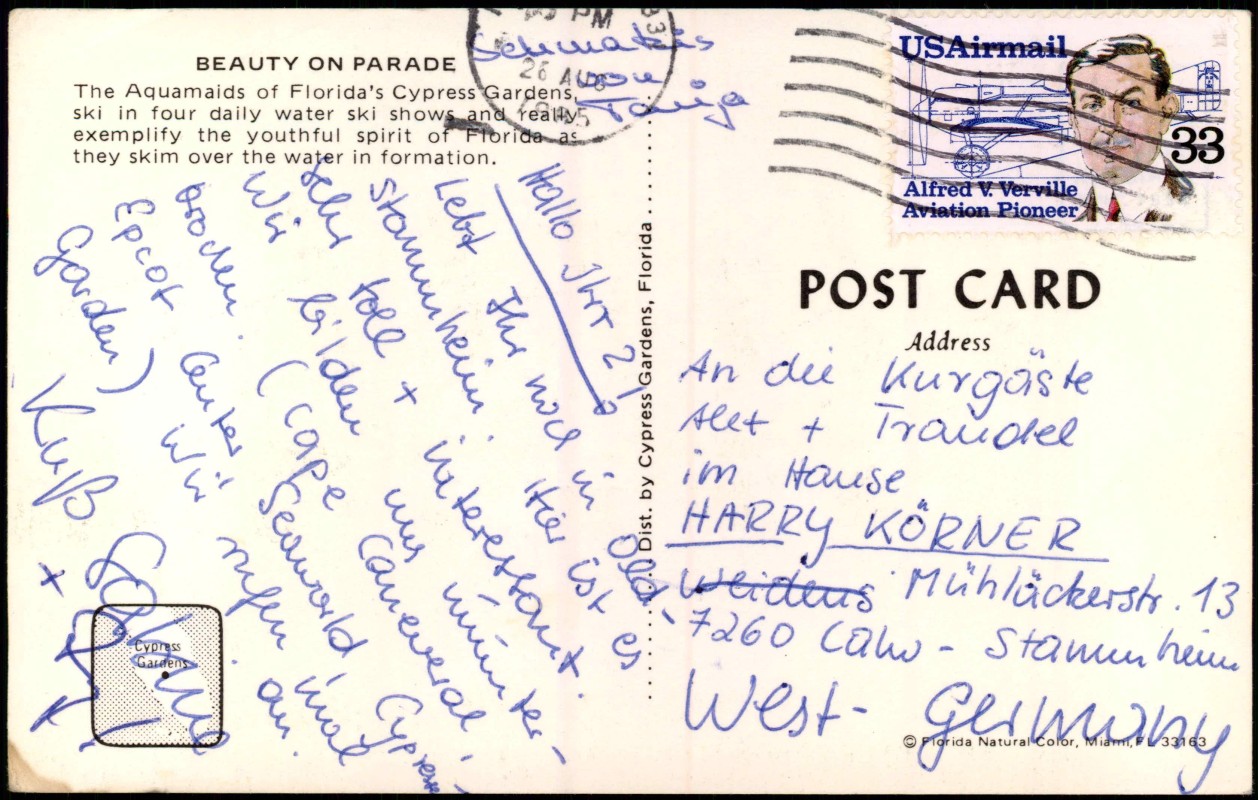 BEAUTY ON PARADE
The Aquamaids of Florida's Cypress Gardens
ski in four daily water ski shows and really
exemplify the youthful spirit of Florida as
they skim over the water in formation.
PM
26 AUG
von
Tanja
USAirmail
33
Alfred V. Verville
Aviation Pioneer
Hallo Ihr 2!
Lebt Ihr noch in Old-
Stammheim. Hier ist es
sehr toll + interessant.
Wir bilden uns munter-
(Cape Canaveral,
Epcot Center, Seaworld, Cypress
Garden) Wir rufen mal an.
Kuß
Sabine
+
Dist. by Cypress Gardens, Florida
POST CARD
Address
An die Kurgäste
+ Traudel
im Hause
HARRY KÖRNER
Mühläckerstr. 13
7260 Calw - Stammheim
West-Germany
Cypress
Gardens
© Florida Natural Color, Miami, FL 33163